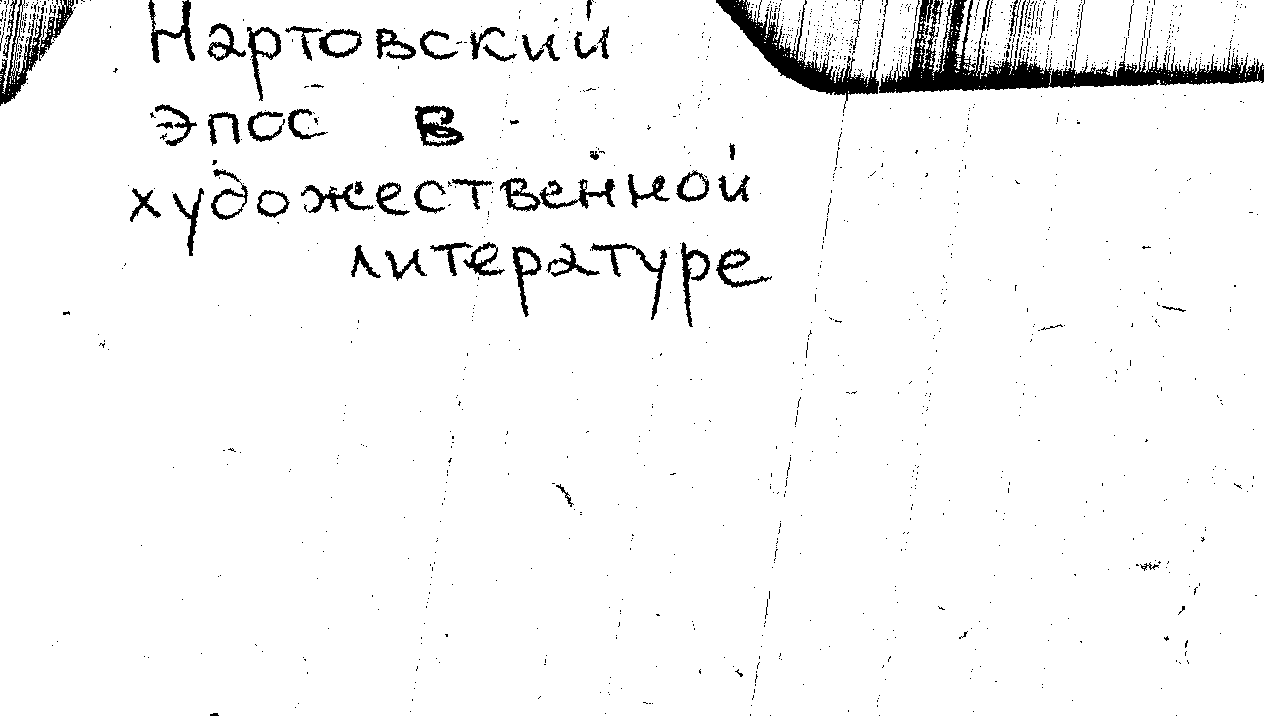 Нартовский
эпос в
художественной
литературе